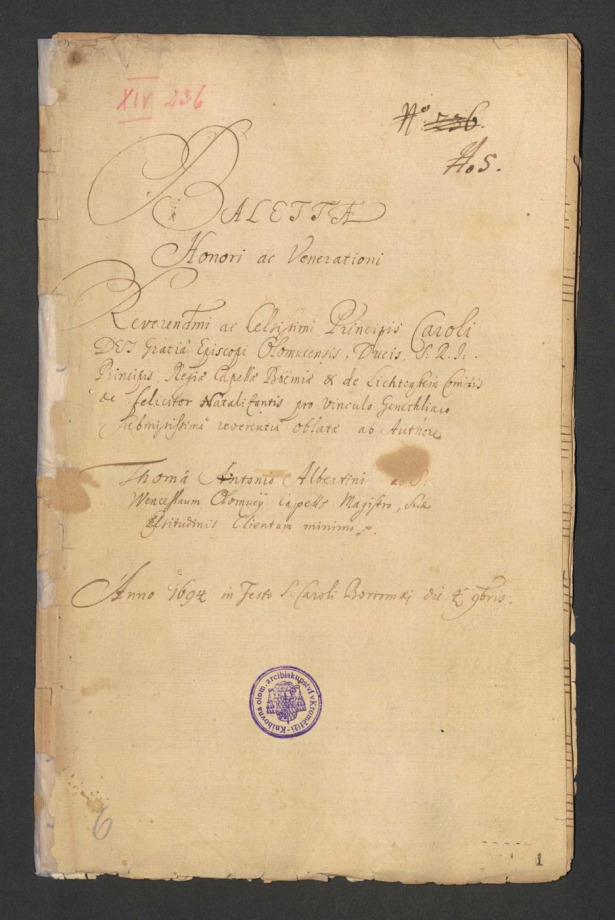 XIV 236
No 536.
No 5.
BALETTÆ
Honori ac Venerationi
Reverendmi ac Celsissimi Principis Caroli
DEI Gratiâ Episcopi Olomucensis, Ducis, S: R: I:
Principis, Regiæ Capellæ Boëmiæ & de Lichtenstein Comitis
feliciter Natalizantis pro vinculo Genethliaco
submississimâ reverentiâ oblatæ ab Authore
Thomâ Antonio Albertini ad S:
Wenceslaum Olomucij Capellæ Magistro, Suæ
Celsitudinis Clientum minimo
Anno 1694 in Festo S. Caroli Borromæi die 4 9bris.
Knihovna olom. arcibiskupství v Kroměříži
6
1